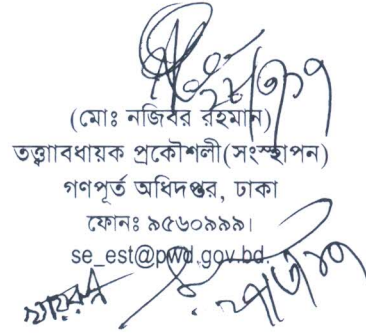 (মোঃ নজিবর রহমান)
তত্ত্বাবধায়ক প্রকৌশলী(সংস্হাপন)
গণপূর্ত অধিদপ্তর, ঢাকা
ফোনঃ ৯৫৬০৯৯৯।
se_est@pwd.gov.bd.